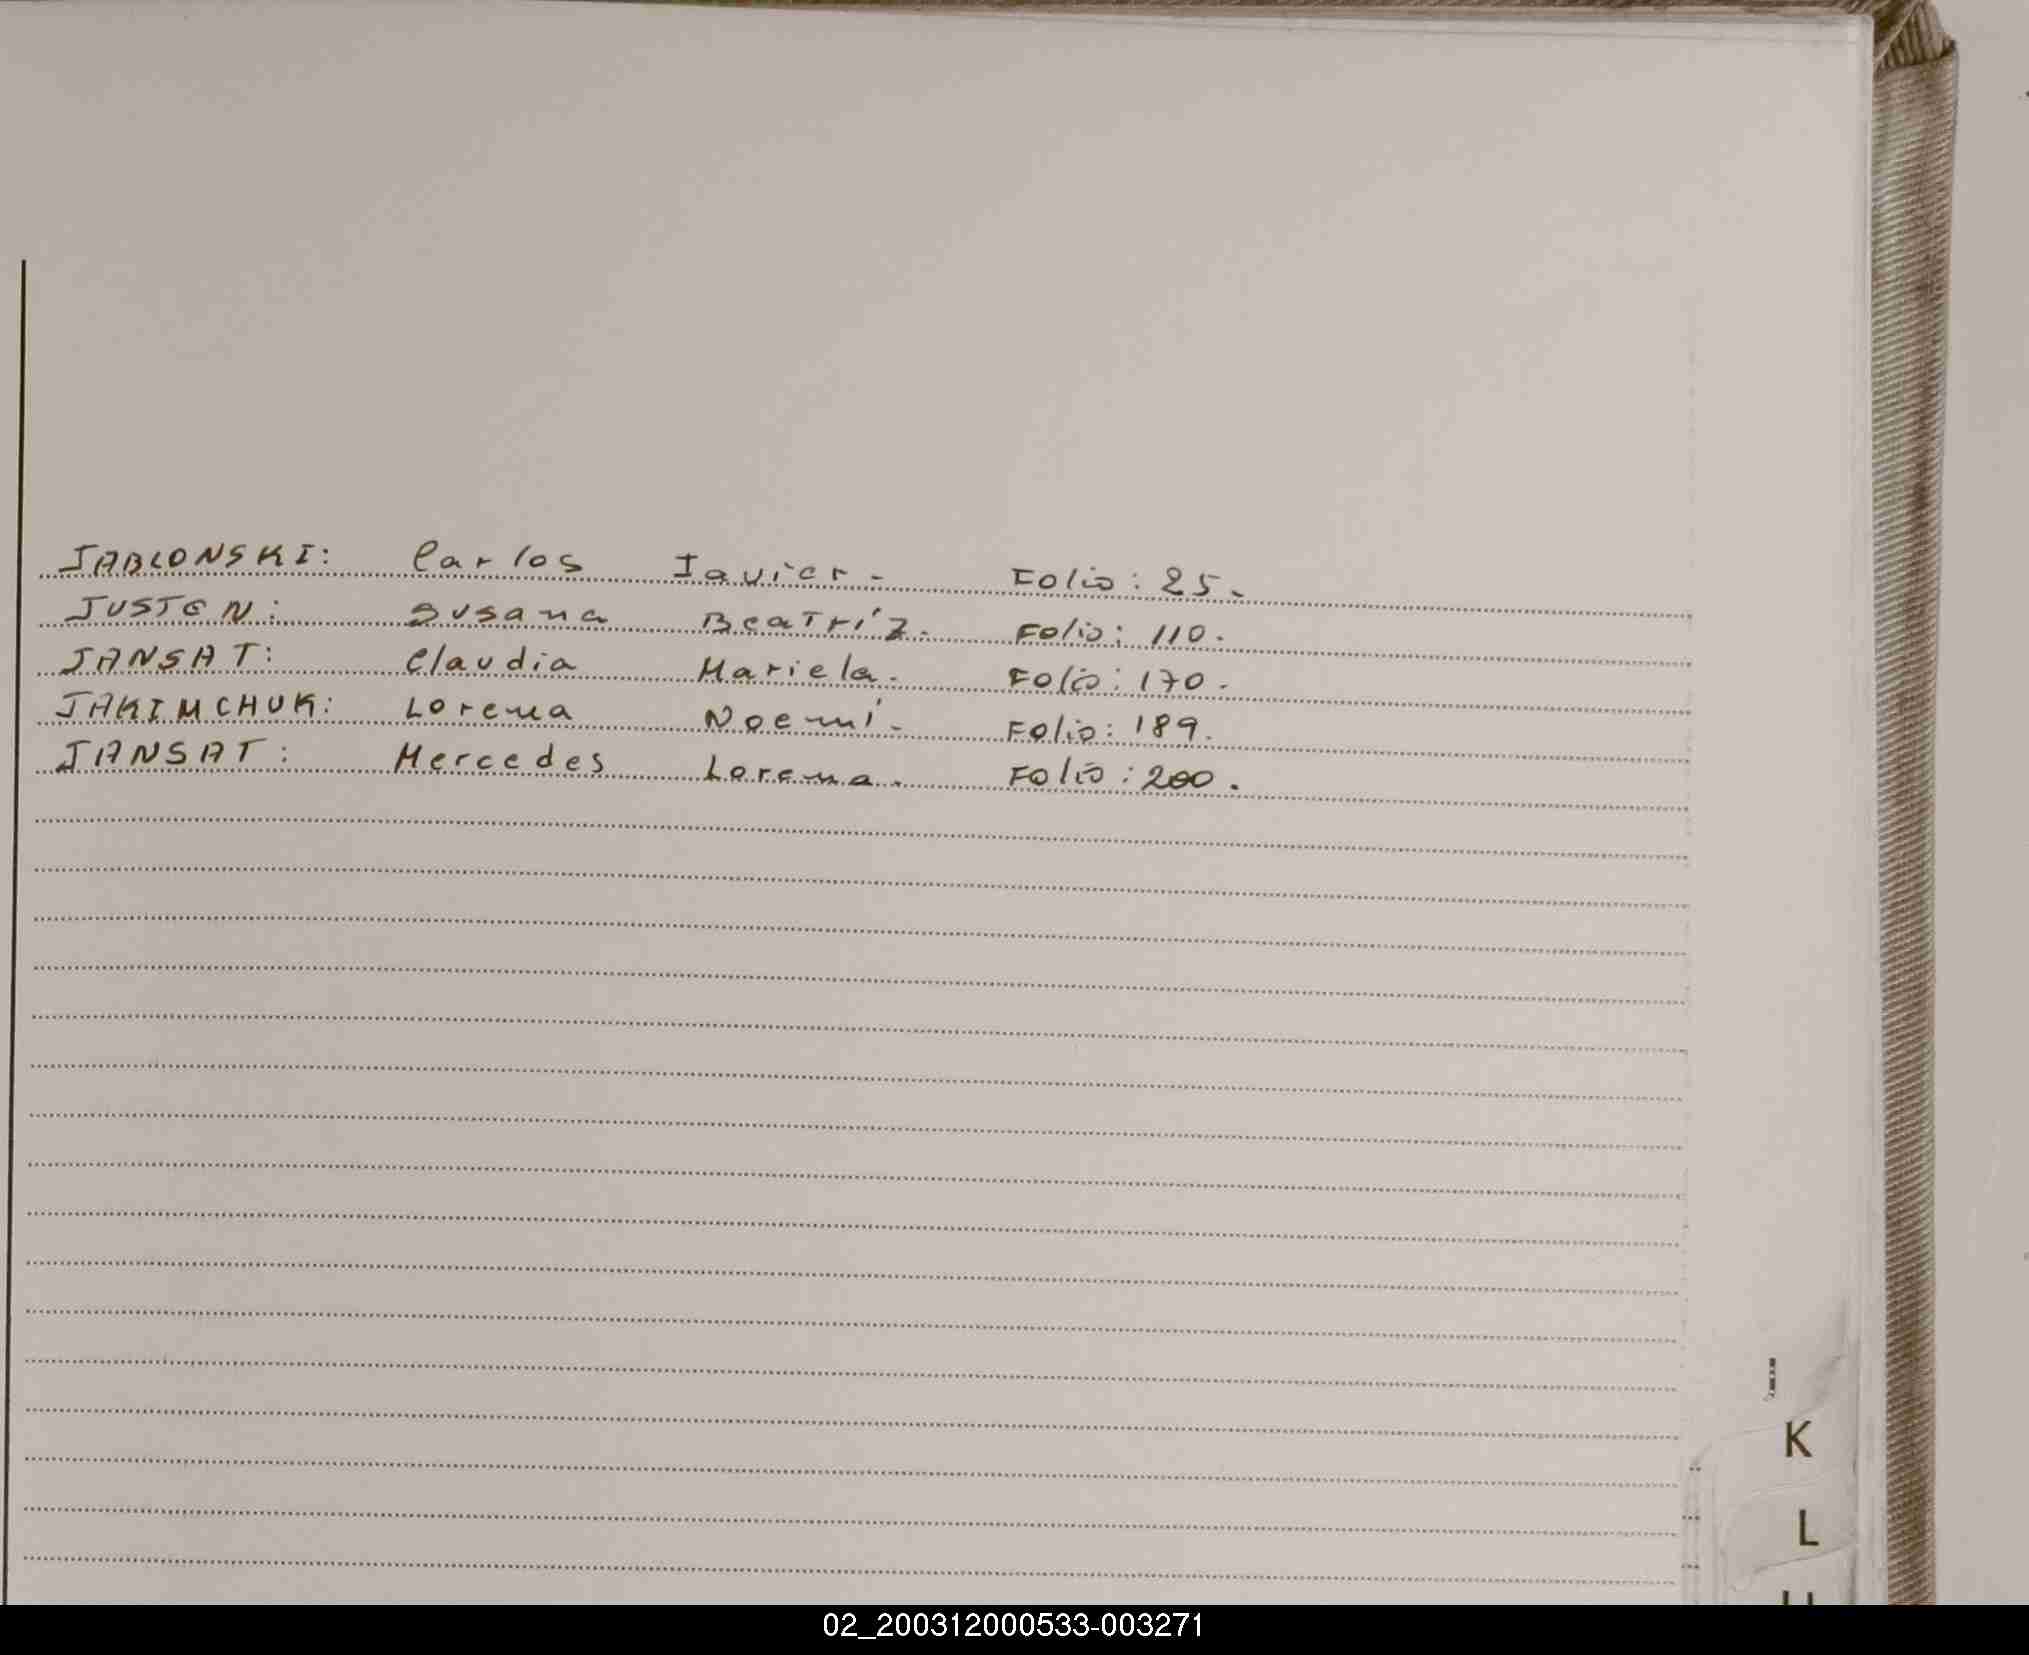 JABLONSKI: Carlos Javier - Folio: 25.
JUSTEN: Susana Beatríz. Folio: 110.
JANSAT: Claudia Mariela. Folio: 170.
JAKIMCHUK: Lorena Noemí. Folio: 189.
JANSAT: Mercedes Lorena. Folio: 200.
J
K
L
02_200312000533-003271